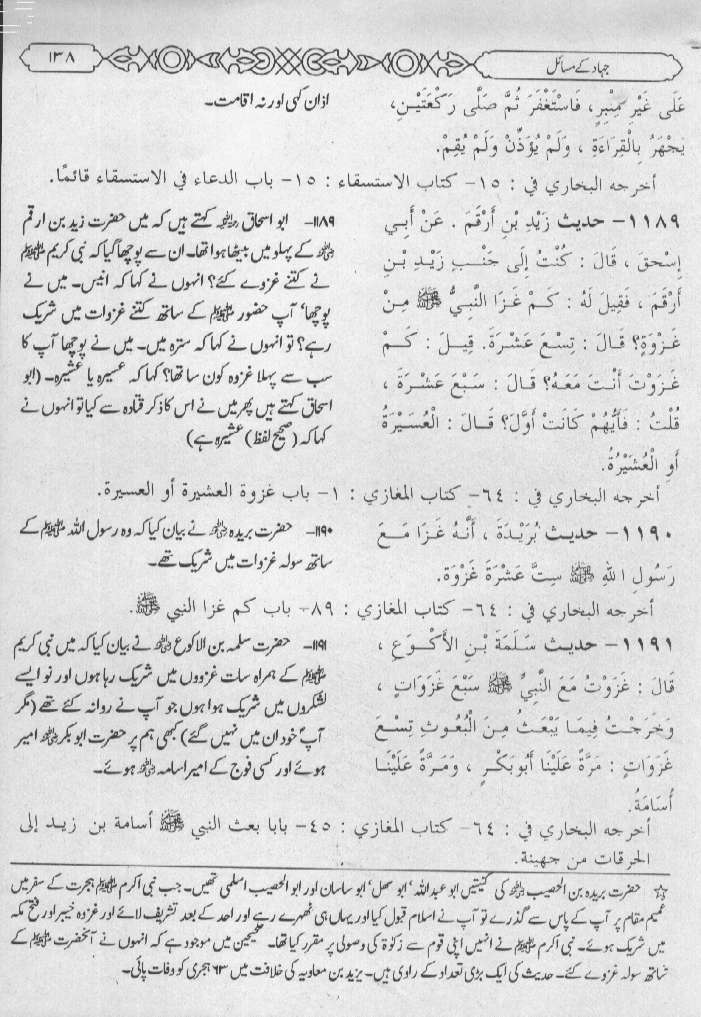 ١٣٨
جہاد کے مسائل
عَلَى غَيْرِ مِنْبَرٍ، فَاسْتَغْفَرَ ثُمَّ صَلَّى رَكْعَتَيْنِ،
يَجْهَرُ بِالْقِرَاءَةِ ، وَلَمْ يُؤَذِّنْ وَلَمْ يُقِمْ.
اذان کہی اور نہ اقامت۔
أخرجه البخاري في : ١٥- كتاب الاستسقاء : ١٥- باب الدعاء في الاستسقاء قائمًا.
١١٨٩- حديث زَيْدِ بْنِ أَرْقَمَ . عَنْ أَبِي
إِسْحقَ ، قَالَ : كُنْتُ إِلَى جَنْبِ زَيْدِ بْنِ
أَرْقَمَ ، فَقِيلَ لَهُ : كَمْ غَزَا النَّبِيُّ ﷺ مِنْ
غَزْوَةٍ؟ قَالَ : تِسْعَ عَشْرَةَ. قِيلَ : كَمْ
غَزَوْتَ أَنْتَ مَعَهُ؟ قَالَ : سَبْعَ عَشْرَةَ ،
قُلْتُ : فَأَيُّهُمْ كَانَتْ أَوَّلَ؟ قَالَ : الْعُسَيْرَةُ
أَوِ الْعُشَيْرُةُ.
۱۱۸۹۔ ابو اسحاق رحمہ اللہ کہتے ہیں کہ میں حضرت زید بن ارقم
رضی اللہ عنہ کے پہلو میں بیٹھا ہوا تھا۔ ان سے پوچھا گیا کہ نبی کریم ﷺ
نے کتنے غزوے کئے؟ انہوں نے کہا کہ انیس۔ میں نے
پوچھا' آپ حضور ﷺ کے ساتھ کتنے غزوات میں شریک
رہے؟ تو انہوں نے کہا کہ سترہ میں۔ میں نے پوچھا آپ کا
سب سے پہلا غزوہ کون سا تھا؟ کہا کہ عسیرہ یا عشیرہ۔ (ابو
اسحاق کہتے ہیں پھر میں نے اس کا ذکر قتادہ سے کیا تو انہوں نے
کہا کہ (صحیح لفظ) عشیرہ ہے)
أخرجه البخاري في : ٦٤- كتاب المغازي : ١- باب غزوة العشيرة أو العسيرة.
١١٩٠- حديث بُرَيْدَةَ ، أَنَّهُ غَزَا مَعَ
رَسُولِ اللهِ ﷺ سِتَّ عَشْرَةَ غَزْوَةً.
۱۱۹۰۔ حضرت بریدہ رضی اللہ عنہ نے بیان کیا کہ وہ رسول اللہ ﷺ کے
ساتھ سولہ غزوات میں شریک تھے۔
أخرجه البخاري في : ٦٤- كتاب المغازي : ٨٩- باب كم غزا النبي ﷺ.
١١٩١- حديث سَلَمَةَ بْنِ الأَكْوَعِ ،
قَالَ : غَزَوْتُ مَعَ النَّبِيِّ ﷺ سَبْعَ غَزَوَاتٍ ،
وَخَرَجْتُ فِيمَا يَبْعَثُ مِنَ الْبُعُوثِ تِسْعَ
غَزَوَاتٍ : مَرَّةً عَلَيْنَا أَبُو بَكْرٍ ، وَمَرَّةً عَلَيْنَا
أُسَامَةُ.
۱۱۹۱۔ حضرت سلمہ بن الاکوع رضی اللہ عنہ نے بیان کیا کہ میں نبی کریم
ﷺ کے ہمراہ سات غزووں میں شریک رہا ہوں اور نو ایسے
لشکروں میں شریک ہوا ہوں جو آپ نے روانہ کئے تھے (مگر
آپ خود ان میں نہیں گئے) کبھی ہم پر حضرت ابوبکر رضی اللہ عنہ امیر
ہوئے اور کسی فوج کے امیر اسامہ رضی اللہ عنہ ہوئے۔
أخرجه البخاري في : ٦٤- كتاب المغازي : ٤٥- بابا بعث النبي ﷺ أسامة بن زيد إلى
الحرقات من جهينة.
☆ حضرت بریدہ بن الحصیب رضی اللہ عنہ کی کنیتیں ابو عبداللہ' ابو سھل' ابو ساسان اور ابو الحصیب اسلمی تھیں۔ جب نبی اکرم ﷺ ہجرت کے سفر میں
غمیم مقام پر آپ کے پاس سے گذرے تو آپ نے اسلام قبول کیا اور یہاں ہی ٹھہرے رہے اور احد کے بعد تشریف لائے اور غزوہ خیبر اور فتح مکہ
میں شریک ہوئے۔ نبی اکرم ﷺ نے انہیں اپنی قوم سے زکوٰۃ کی وصولی پر مقرر کیا تھا۔ صحیحین میں موجود ہے کہ انہوں نے آنحضرت ﷺ کے
ساتھ سولہ غزوے کئے۔ حدیث کی ایک بڑی تعداد کے راوی ہیں۔ یزید بن معاویہ کی خلافت میں ۶۳ ہجری کو وفات پائی۔